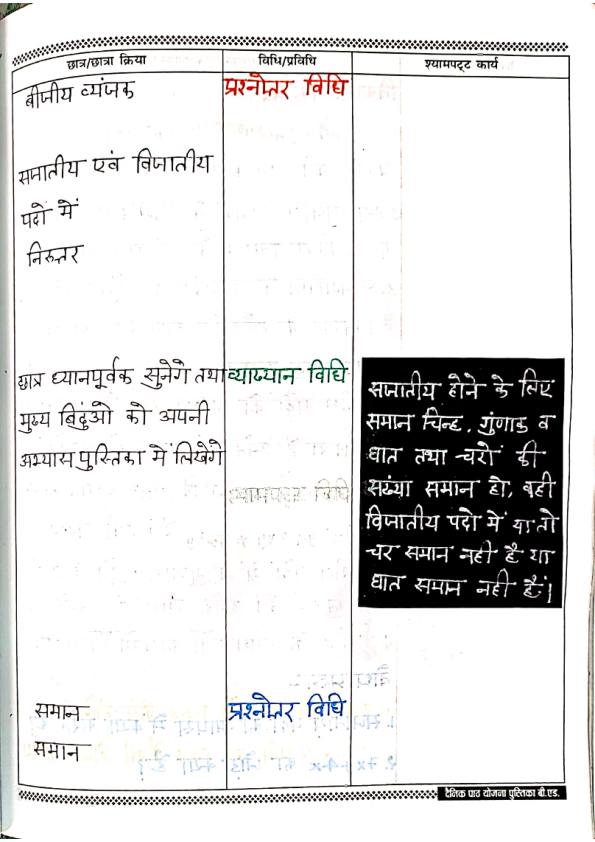 छात्र/छात्रा क्रिया विधि/प्रविधि श्यामपट्ट कार्य
बीजीय व्यंजक प्रश्नोत्तर विधि
सजातीय एवं विजातीय
पदो में
निरुत्तर
छात्र ध्यानपूर्वक सुनेगे तथा व्याख्यान विधि
मुख्य बिदुंओ को अपनी
अभ्यास पुस्तिका में लिखेंगे
श्यामपट्ट विधि
सजातीय होने के लिए
समान चिन्ह, गुंणाक व
घात तथा चरों की
सख्ंया समान हो, वही
विजातीय पदो में या तो
चर समान नही है या
घात समान नही हैं।
समान प्रश्नोत्तर विधि
समान
दैनिक पाठ योजना पुस्तिका बी.एड.